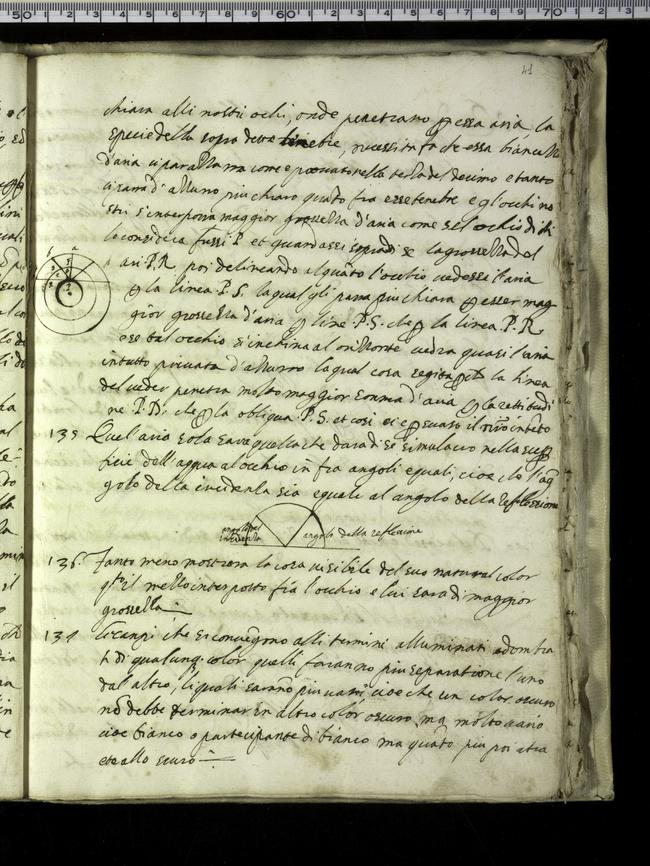 41
chiara alli nostri ochi, onde penetrano p essa aria, la
specie della sopra dette tenebre, necessita fa che essa bianche
d'aria ci paralla come e provato nella terza del decimo e tanto
ci sarà d'alluno piu chiaro quāto fra esse tenebre e gl'ochi no
stri s'interporra maggior grossezza d'aria come se l'occhio di chi
la considera fussi P. et guardassi sopra di se la grossezza del
ari P.R. poi declinando alquāto l'occhio vedessi l'aria
p la linea P.S. la qual gli parra piu chiara p esser mag
gior grossezza d'aria p line P.S. che p la linea P.R.
e se tal occhio s'inchina al orizonte vedra quasi l'aria
in tutto privata d'azurro la qual cosa seguita pch la linea
del veder penetra molto maggior somma d'aria p la rettitudi
ne P.D. che p la obliqua P.S. et cosi si e p suaso il mio intēto
135 Quel aria sola sara quella che dara di se simulacro nella sup
ficie dell'acqua al occhio in fra angoli equali, cioe che l'an
golo della incidenza sia equale al angolo della reflessione
angolo del incidenza
angolo della reflexione
136. Tanto meno mostrera la cosa visibile del suo natural color
qto il mezzo interposto fra l'occhio e lui sara di maggior
grossezza
137 Li campi che si convegono alli termini alluminati adombra
ti di qualunq color quelli faranno piu separatione l'uno
dal altro, li quali sarāno piu varii cioe che un color oscuro
nō debbe terminar in altro color oscuro ma molto vario
cioe bianco o partecipante di bianco ma quāto piu poi atra
cte allo scuro